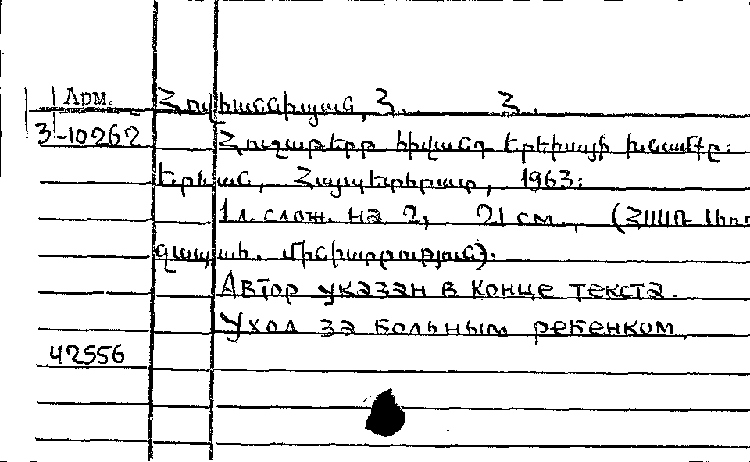 Арм.
Հովհաննիսյան, Հ. Հ.
3-10262
հիվանդ երեխայի խնամքը:
Երևան, Հայպետհրատ, 1963:
1 л. слож. на 2, 21 см., (ՀՍՍՌ
մինիստրություն).
Автор указан в конце текста.
Уход за больным ребенком.
42556